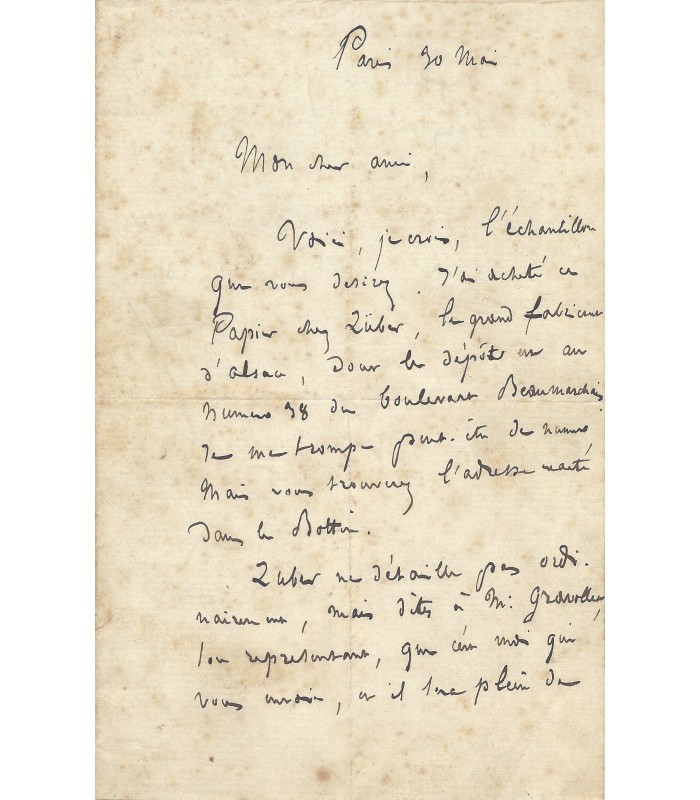 Paris 30 Mai
Mon cher ami,
Voici, je crois, l'échantillon
que vous desirez. J'ai acheté ce
Papier chez Züber, le grand fabricant
d'alsace, dont le dépôt est au
numero 38 du boulevard Beaumarchais.
Je me trompe peut-être de numero,
Mais vous trouverez l'adresse exacte
dans le Bottin.
Züber ne détaille pas ordi-
nairement, mais dites à Mr. Gravollet,
son representant, que c'est moi qui
vous envoie, et il sera plein de